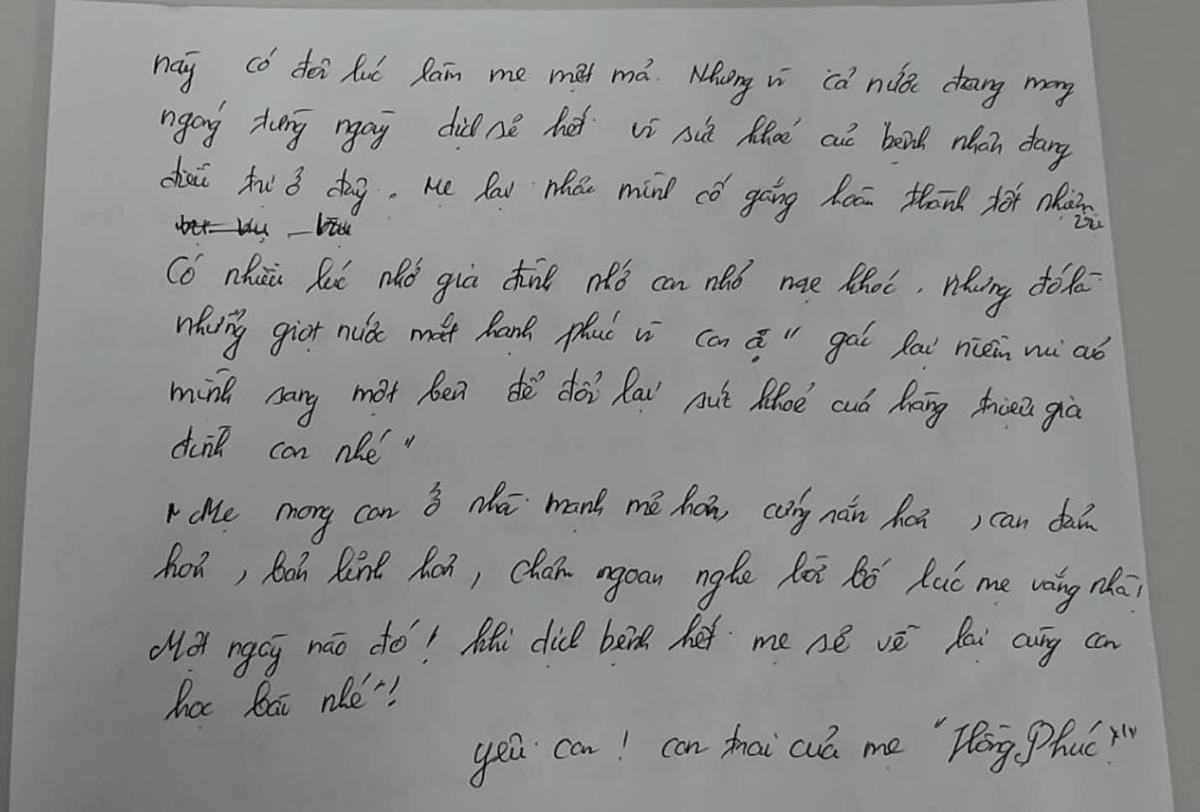 này có đôi lúc làm mẹ mệt mỏi. Nhưng vì cả nước đang mong
ngóng từng ngày dịch sẽ hết vì sức khoẻ của bệnh nhân đang
điều trị ở đây. Mẹ lại nhắc mình cố gắng hoàn thành tốt nhiệm
vụ
Có nhiều lúc nhớ gia đình nhớ con nhỏ mẹ khóc. nhưng đó là
những giọt nước mắt hạnh phúc vì con ạ " gác lại niềm vui của
mình sang một bên để đổi lại sức khoẻ của hàng triệu gia
đình con nhé"
Mẹ mong con ở nhà mạnh mẽ hơn, cứng rắn hơn, can đảm
hơn, bản lĩnh hơn, chăm ngoan nghe lời bố lúc mẹ vắng nhà!
Một ngày nào đó! khi dịch bệnh hết mẹ sẽ về lại cùng con
học bài nhé"!
yêu con! con trai của mẹ "Hồng Phúc!"